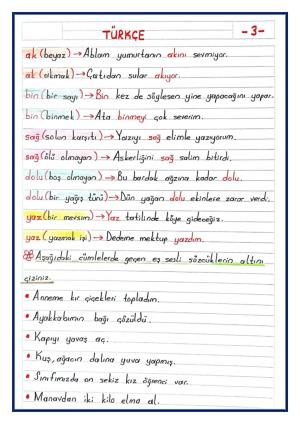 TÜRKÇE
-3-
ak (beyaz) → Ablam yumurtanın akını sevmiyor.
ak (akmak) → Çatıdan sular akıyor.
bin (bir sayı) → Bin kez de söylesen yine yapacağını yapar.
bin (binmek) → Ata binmeyi çok severim.
sağ (solun karşıtı) → Yazıyı sağ elimle yazıyorum.
sağ (ölü olmayan) → Askerliğini sağ salim bitirdi.
dolu (boş olmayan) → Bu bardak ağzına kadar dolu.
dolu (bir yağış türü) → Dün yağan dolu ekinlere zarar verdi.
yaz (bir mevsim) → Yaz tatilinde köye gideceğiz.
yaz (yazmak işi) → Dedeme mektup yazdım.
Aşağıdaki cümlelerde geçen eş sesli sözcüklerin altını
çiziniz.
• Anneme kır çiçekleri topladım.
• Ayakkabımın bağı çözüldü.
• Kapıyı yavaş aç.
• Kuş, ağacın dalına yuva yapmış.
• Sınıfımızda on sekiz kız öğrenci var.
• Manavdan iki kilo elma al.